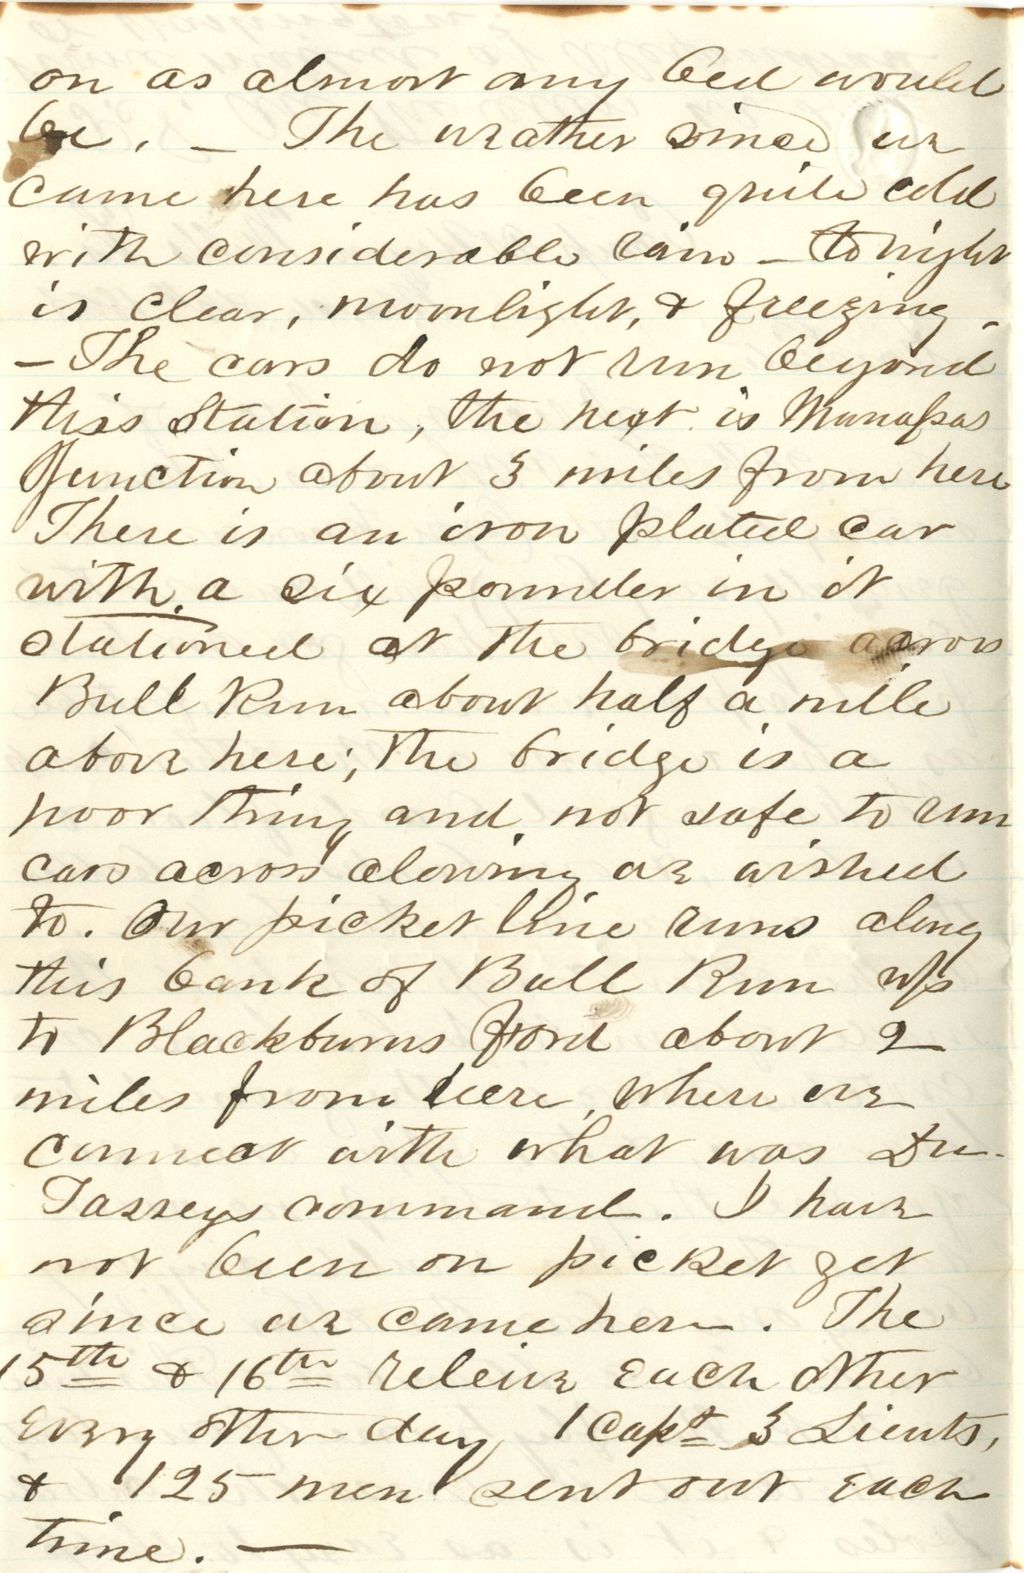 on as almost any bed would
be. — The weather since we
came here has been quite cold
with considerable rain — tonight
is clear, moonlight, & freezing.
— The cars do not run beyond
this Station, the next is Manassas
Junction about 3 miles from here
There is an iron plated car
with a six pounder in it
stationed at the bridge across
Bull Run about half a mile
above here; the bridge is a
poor thing and not safe to run
cars across allowing we wished
to. Our picket line runs along
this bank of Bull Run up
to Blackburns ford about 2
miles from here, where we
connect with what was Du-
command. I have
not been on picket yet
since we came here. The
15th & 16th releive each other
every other day 1 Capt 3 Lieuts,
& 125 men sent out each
time. —